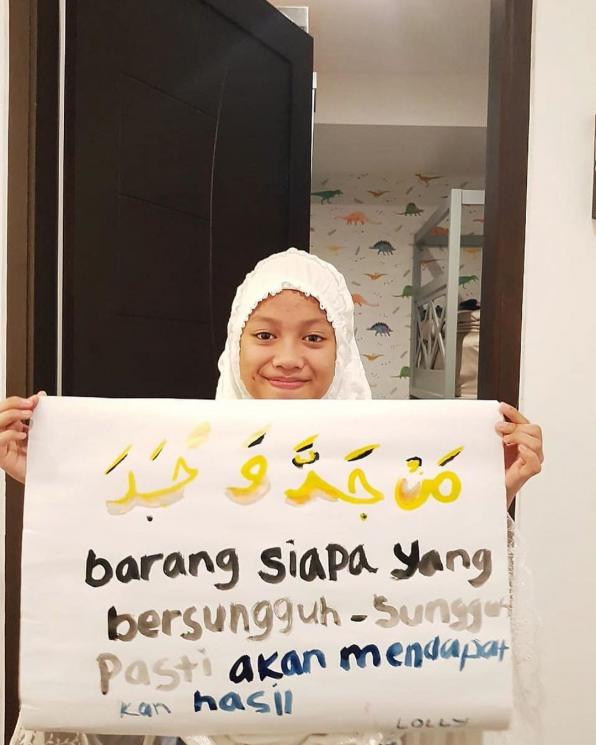 مَنْ جَدَّ وَ جَدَ
barang siapa yang
bersungguh-Sungguh
Pasti akan mendapat
kan hasil
LOLLY